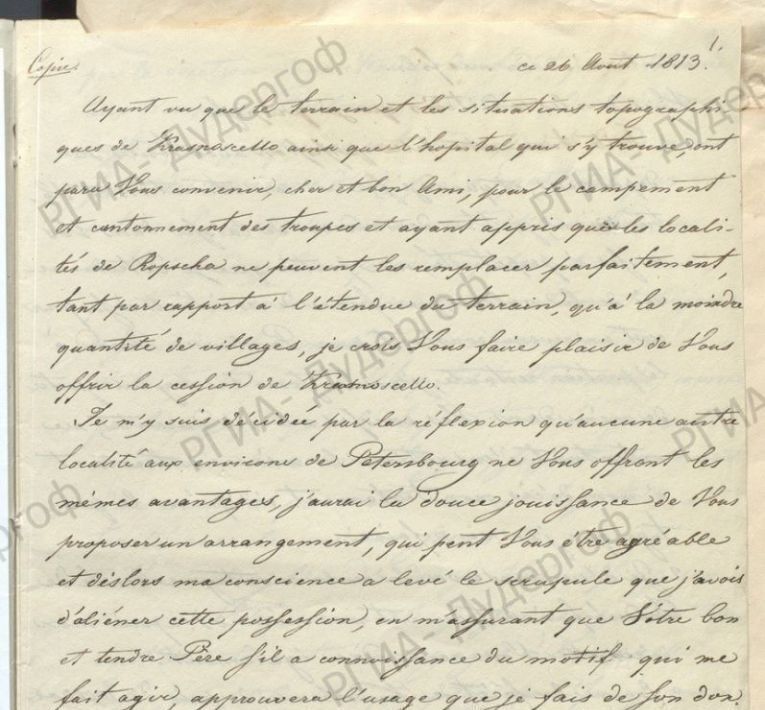 1.
Copie. ce 26 Aout 1813.
Ayant vu que le terrain et les situations topographi
ques de Krasnoscello ainsi que l'hopital qui s'y trouve, ont
paru Vous convenir, cher et bon Ami, pour le campement
et cantonnement des troupes et ayant appris que les locali-
tés de Ropscha ne peuvent les remplacer parfaitement,
tant par rapport à l'étendue du terrain, qu'à la moindre
quantité de villages, je crois Vous faire plaisir de Vous
offrir la cession de Krasnoscello.
Je m'y suis decidée par la réflexion qu'aucune autre
localité aux environs de Petersbourg ne Vous offrant les
mêmes avantages, j'aurai la douce jouissance de Vous
proposer un arrangement, qui peut Vous être agréable
et dèslors ma conscience a levé le scrupule que j'avois
d'aliéner cette possession, en m'assurant que Vôtre bon
et tendre Père s'il a connoissance du motif qui me
fait agir, approuvera l'usage que je fais de Son don.
РГИА- Дудергоф
РГИА- Дудергоф
РГИА- Дудергоф
РГИА- Дудергоф